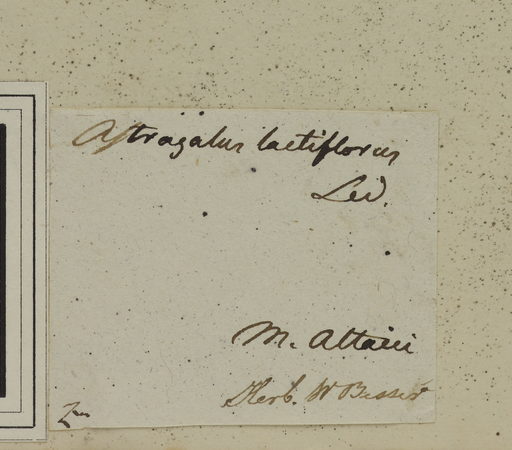 Astragalus lactiflorus
Led.
M. Altaici
Herb. W Besser